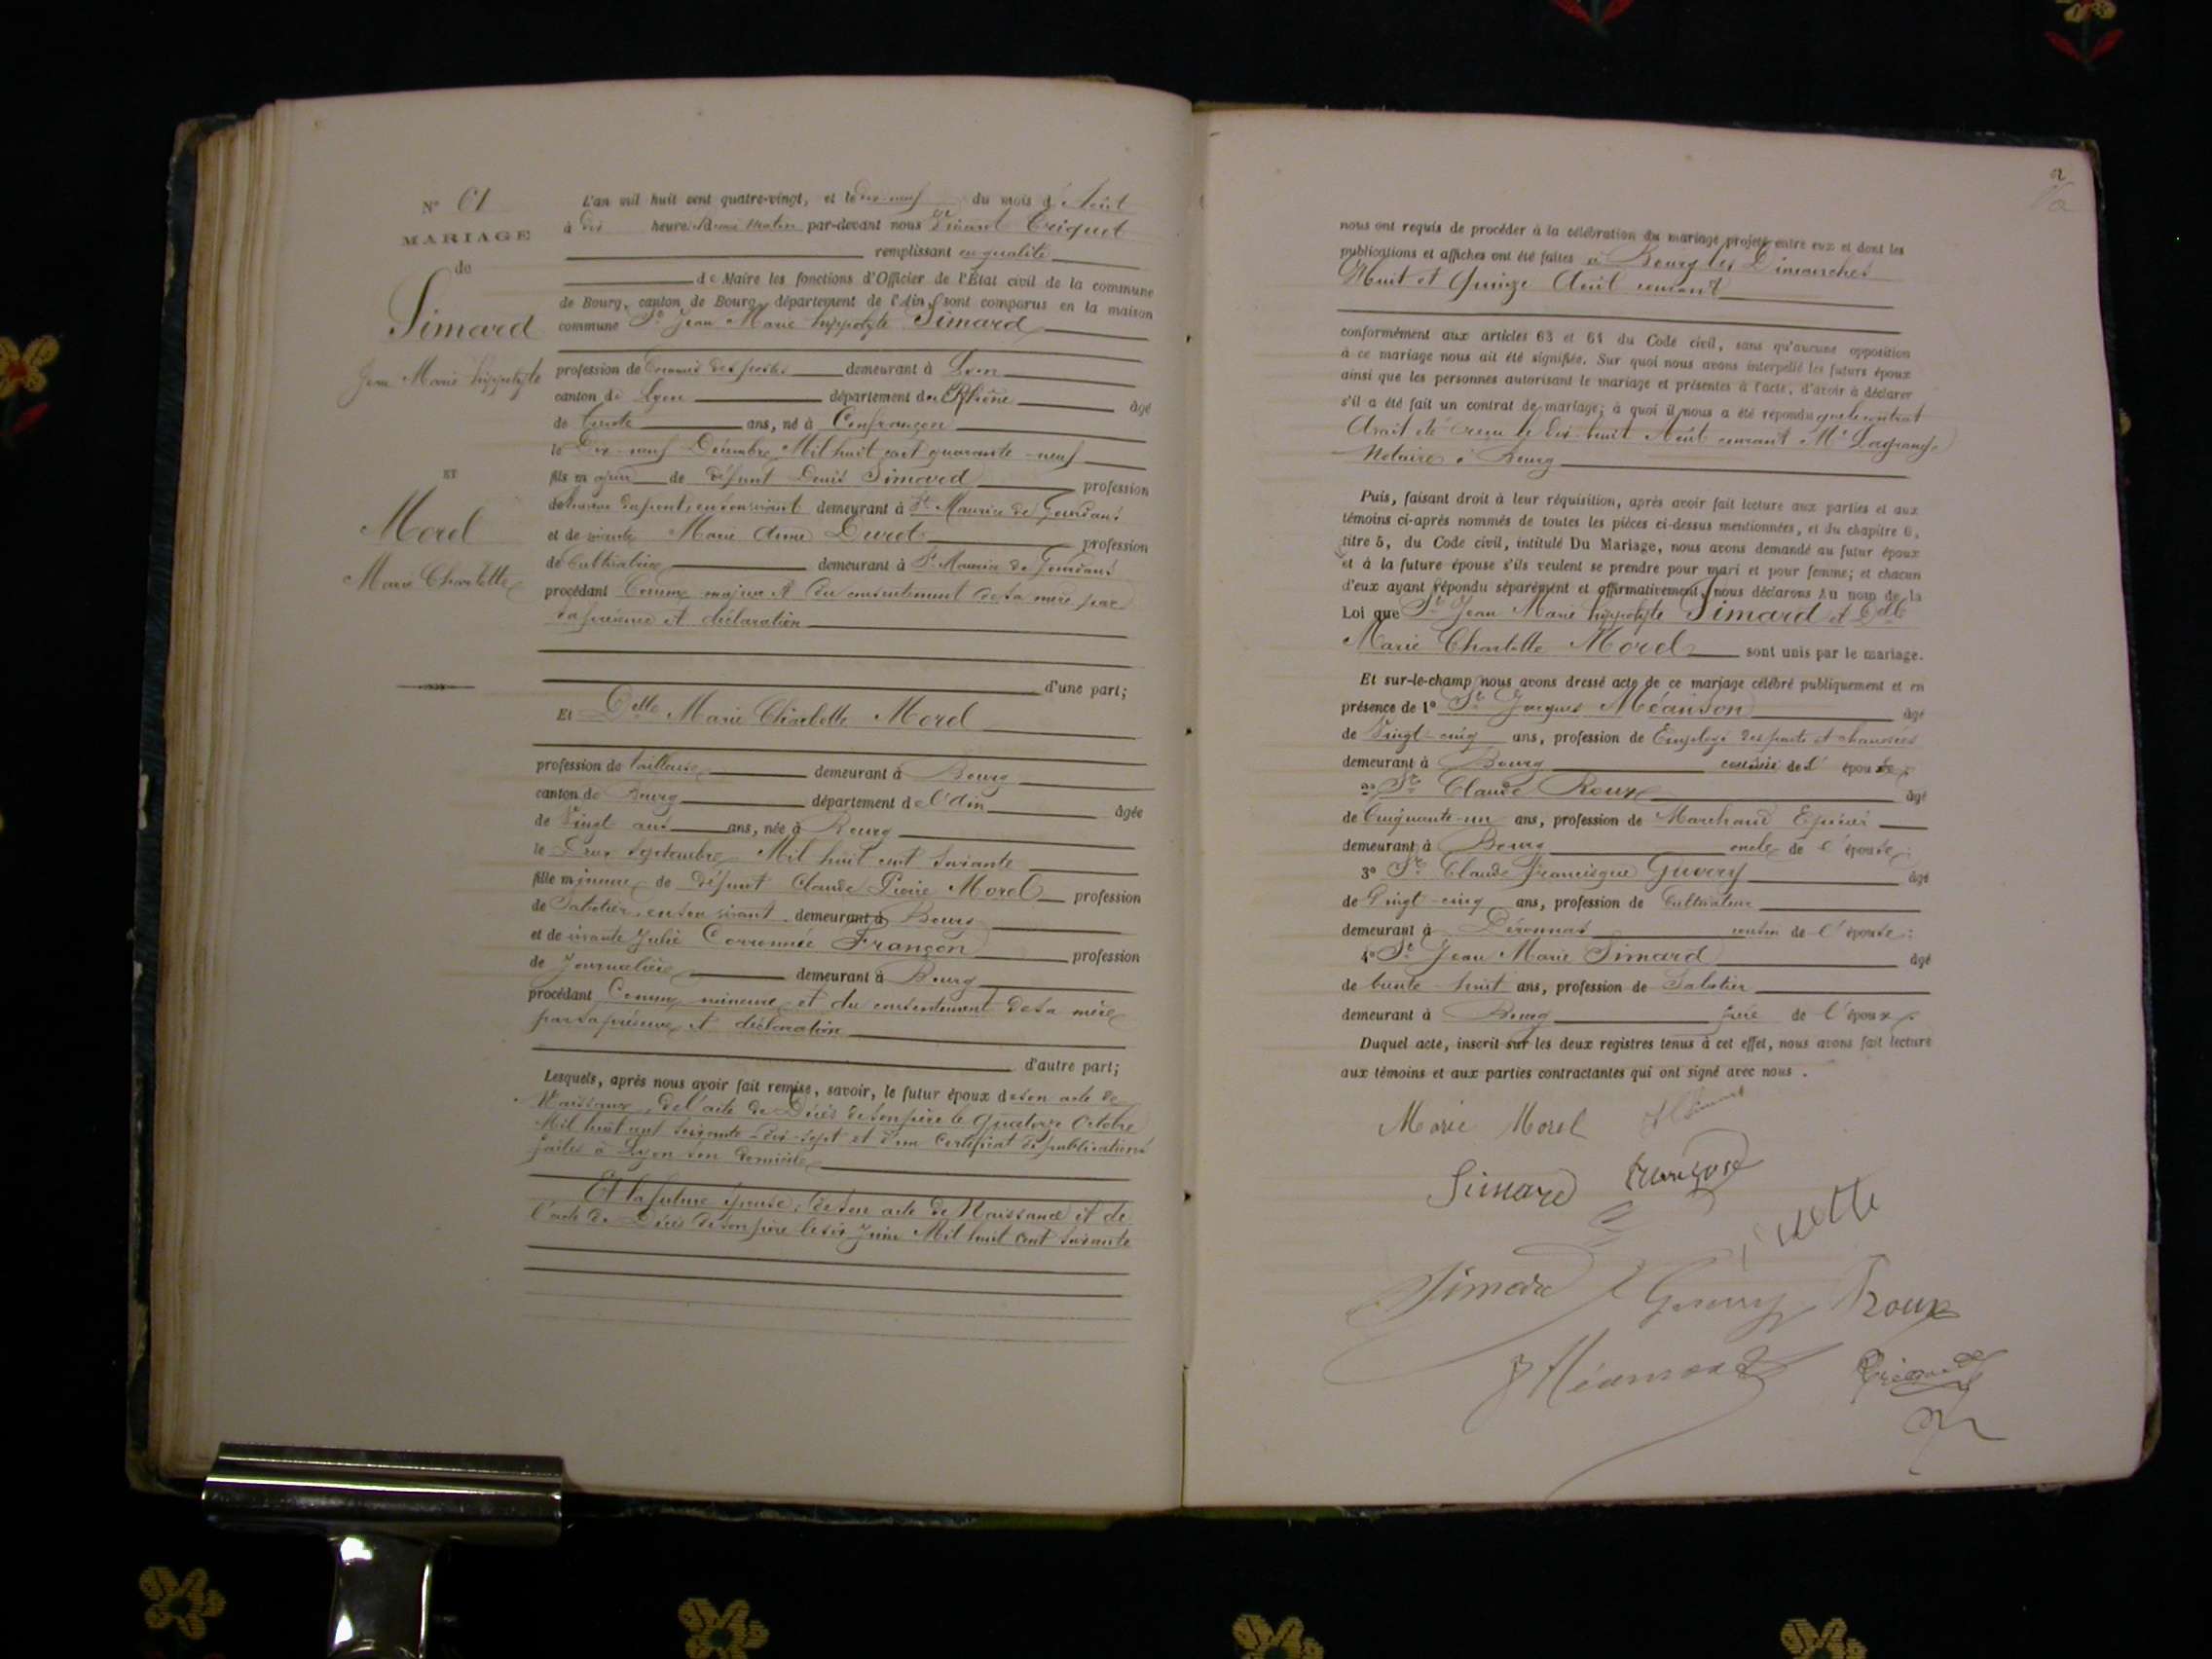 Nº 61
MARIAGE
de
Simard
Jean Marie hyppolyte
ET
Morel
Marie Charlotte
L'an mil huit cent quatre-vingt, et le dix-neuf du mois d'Août
à dix heures du matin par-devant nous
remplissant en qualité
de Maire les fonctions d'Officier de l'État civil de la commune
de Bourg, canton de Bourg, département de l'Ain, sont comparus en la maison
commune Sr Jean Marie hyppolyte Simard
profession de des postes demeurant à Lyon
canton de Lyon département du Rhône âgé
de trente ans, né à Confrançon
le Dix-neuf Décembre Mil huit cent quarante-neuf
fils majeur de défunt Denis Simard profession
de en son vivant demeurant à St Maurice de Gourdans
et de vivante Marie Anne profession
de Cultivatrice demeurant à St Maurice de Gourdans
procédant Comme majeur et du consentement de sa mère par
sa présence et déclaration
d'une part;
Et Delle Marie Charlotte Morel
profession de tailleuse demeurant à Bourg
canton de Bourg département de l'Ain âgée
de Vingt ans ans, née à Bourg
le Deux Septembre Mil huit cent soixante
fille mineure de défunt Claude Pierre Morel profession
de Sabotier, en son vivant demeurant à Bourg
et de vivante Julie Françon profession
de Journalière demeurant à Bourg
procédant Comme mineure et du consentement de sa mère
par sa présence et déclaration
d'autre part;
Lesquels, après nous avoir fait remise, savoir, le futur époux de son acte de
Naissance, de l'acte de Décès de son père le Quatorze Octobre
Mil huit cent soixante-dix-sept et d'un Certificat de publications
faites à Lyon son domicile
Et la future épouse, de son acte de Naissance et de
l'acte de Décès de son père le six Juin Mil huit cent soixante
nous ont requis de procéder à la célébration du mariage projeté entre eux et dont les
publications et affiches ont été faites à Bourg les Dimanches
Huit et Quinze Août courant
conformément aux articles 63 et 64 du Code civil, sans qu'aucune opposition
à ce mariage nous ait été signifiée. Sur quoi nous avons interpellé les futurs époux
ainsi que les personnes autorisant le mariage et présentes à l'acte, d'avoir à déclarer
s'il a été fait un contrat de mariage; à quoi il nous a été répondu que le contrat
Avait été reçu le dix-huit Août courant Me Lagrange
Notaire à Bourg
Puis, faisant droit à leur réquisition, après avoir fait lecture aux parties et aux
témoins ci-après nommés de toutes les pièces ci-dessus mentionnées, et du chapitre 6,
titre 5, du Code civil, intitulé Du Mariage, nous avons demandé au futur époux
et à la future épouse s'ils veulent se prendre pour mari et pour femme; et chacun
d'eux ayant répondu séparément et affirmativement, nous déclarons au nom de la
Loi que Sr Jean Marie hyppolyte Simard et Delle
Marie Charlotte Morel sont unis par le mariage.
Et sur-le-champ nous avons dressé acte de ce mariage célébré publiquement et en
présence de 1º Sr Jacques Méanson âgé
de Vingt-cinq ans, profession de Employé des ponts et chaussées
demeurant à Bourg cousin de l'épouse;
2º Sr Claude Roux âgé
de Cinquante-un ans, profession de Marchand Epicier
demeurant à Bourg oncle de l'épouse;
3º Sr Claude Francisque Guvery âgé
de Vingt-cinq ans, profession de Cultivateur
demeurant à Péronnas cousin de l'épouse;
4º Sr Jean Marie Simard âgé
de trente-huit ans, profession de Sabotier
demeurant à Bourg frère de l'époux.
Duquel acte, inscrit sur les deux registres tenus à cet effet, nous avons fait lecture
aux témoins et aux parties contractantes qui ont signé avec nous.
Marie Morel
Simard françon
Simard Guvery Roux
J Méanson